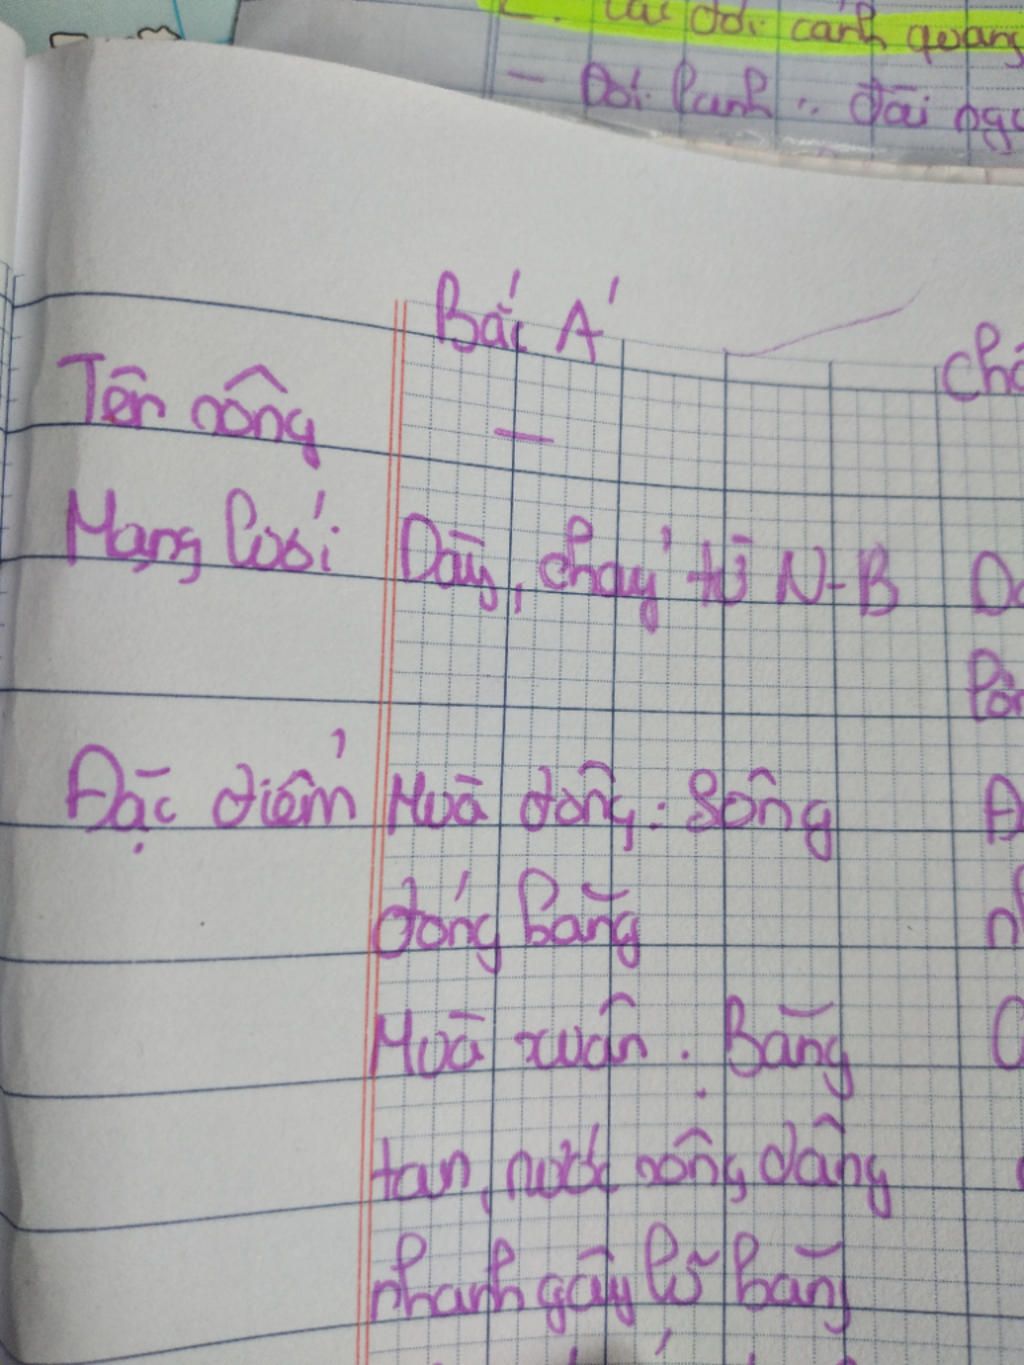 2. Các đới cảnh quang
- Đới lạnh: đài ngu
Bắc Á
Tên sông
-
Mạng lưới Dày, chảy từ N-B
Đặc điểm Mùa đông: Sông
đóng băng
Mùa xuân: Băng
tan, nước sông dâng
nhanh gây lũ băng